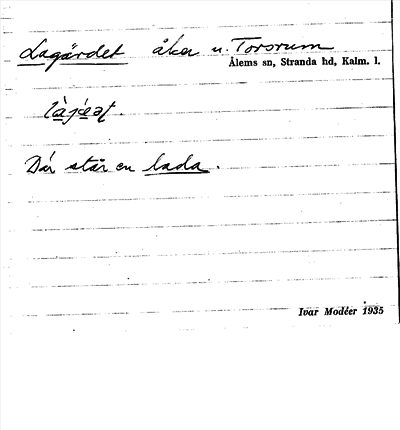 Lagärdet åker u. Torsrum
Ålems sn, Stranda hd, Kalm. l.
Där står en lada.
Ivar Modéer 1935